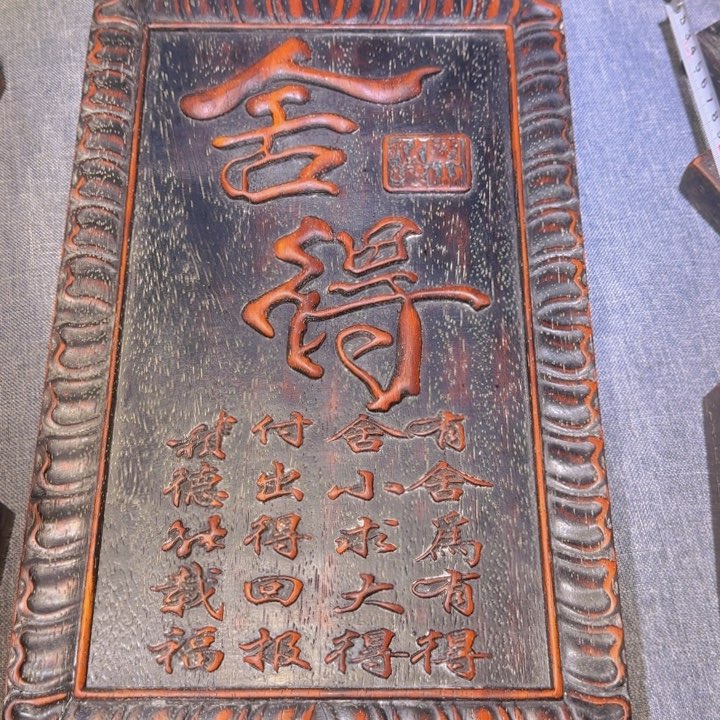 舍得
有舍為有得
舍小求大得
付出得回报
積德載福